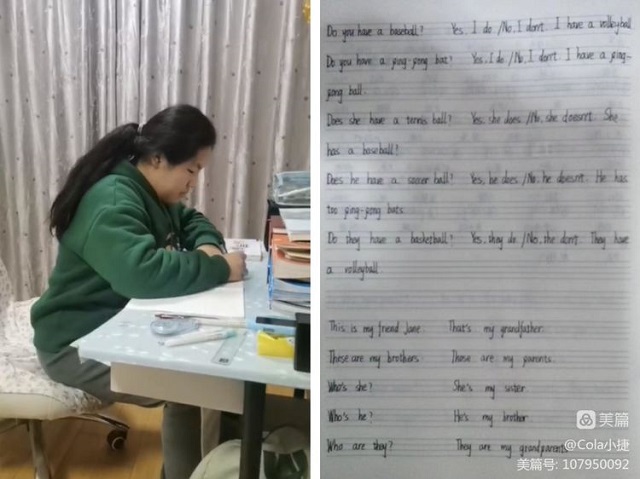 Do you have a baseball? Yes, I do. /No, I don't. I have a volleyball
Do you have a ping-pong bat? Yes, I do /No, I don't. I have a ping-
pong ball.
Does she have a tennis ball? Yes, she does. /No, she doesn't. She
has a baseball!
Does he have a soccer ball? Yes, he does. /No, he doesn't. He has
too ping-pong bats.
Do they have a basketball? Yes, they do. /No, the don't. They have
a volleyball
This is my friend Jane. That's my grandfather.
These are my brothers. Those are my parents.
Who's she? She's my sister.
Who's he? He's my brother
Who are they? They are my grandparents
美篇
@Cola小捷
美篇号: 107950092